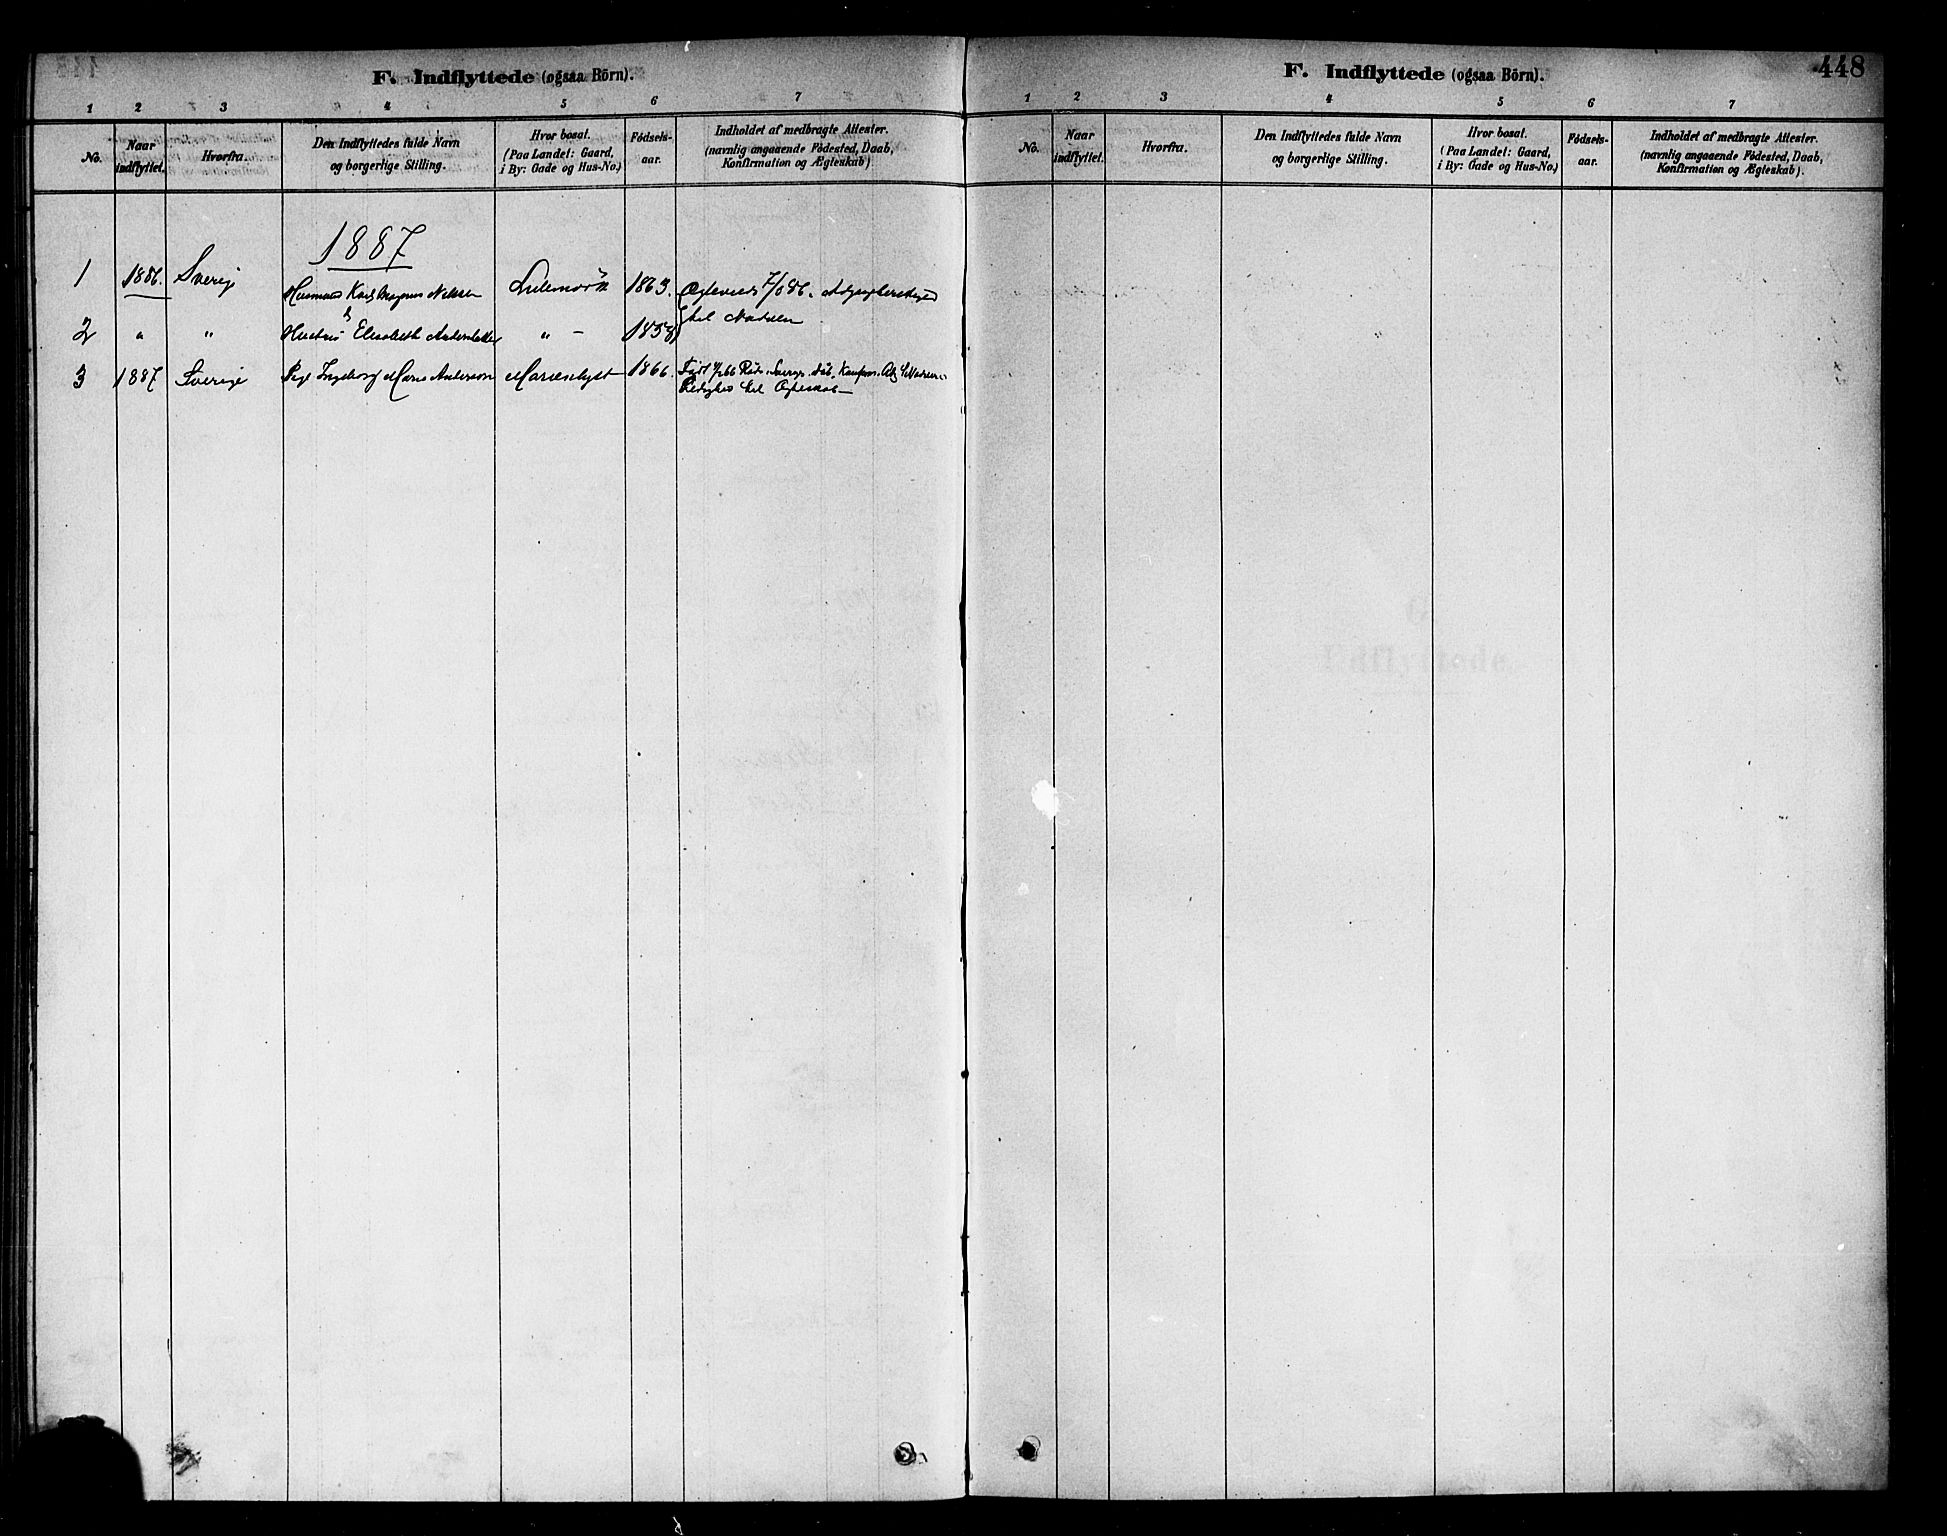 F. Indflyttede (ogsaa Börn).
1 2 3 4 5 6 7
No. Naar indflyttet. Hvorfra. Den Indflyttedes fulde Navn og borgerlige Stilling. Hvor bosat. (Paa Landet: Gaard, i By: Gade og Hus-No.) Födsels-aar. Indholdet af medbragte Attester. (navnlig angaaende Födested, Daab, Konfirmation og Ægteskab)
1887
1 1886. Sverige Karl Magnus 1863. Ægteviede
2 " " Hustru Elisabeth " — 1858 til Nadveren
3 1887 Sverige Pige Ingeborg Marie Anderson Marienlyst 1866. Född
til Ægteskab —
448
F. Indflyttede (ogsaa Börn).
1 2 3 4 5 6 7
No. Naar indflyttet. Hvorfra. Den Indflyttedes fulde Navn og borgerlige Stilling. Hvor bosat. (Paa Landet: Gaard, i By: Gade og Hus-No.) Födsels-aar. Indholdet af medbragte Attester. (navnlig angaaende Födested, Daab, Konfirmation og Ægteskab).